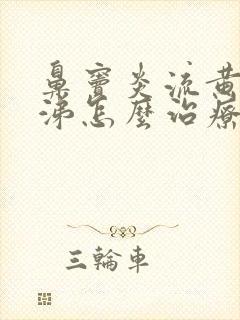 鼻竇炎流黄
涕怎麼治療
三輪車